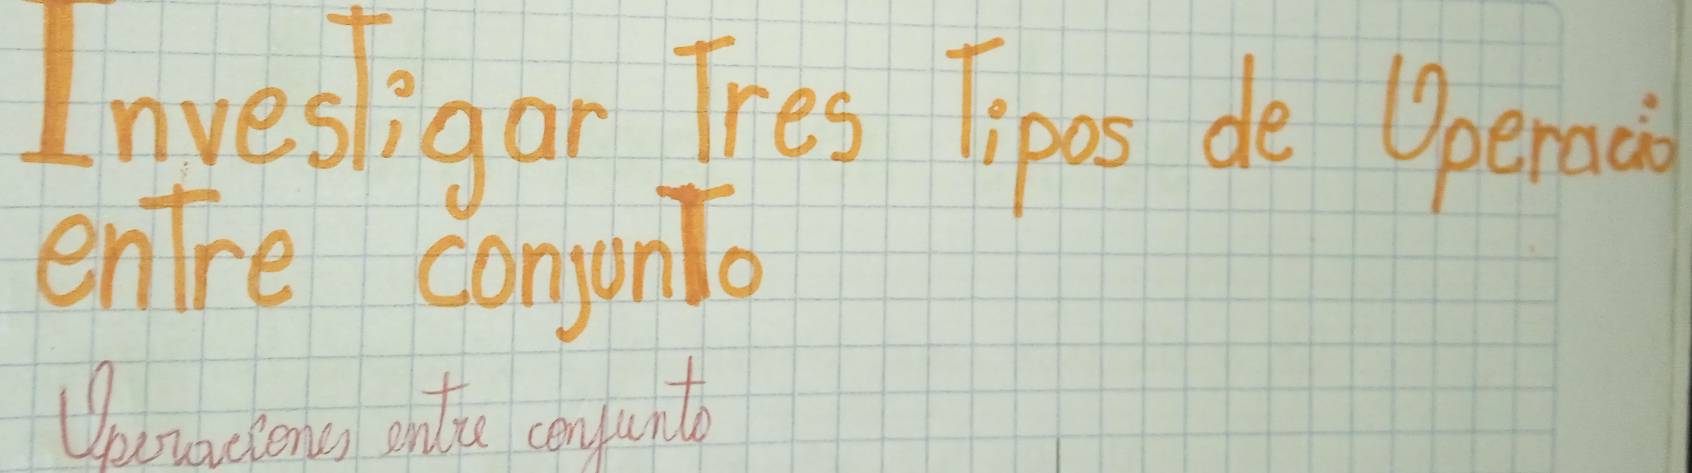 Investigar Tres Tipos de Operacio
entre conjunto
Operaciones entre conjunto